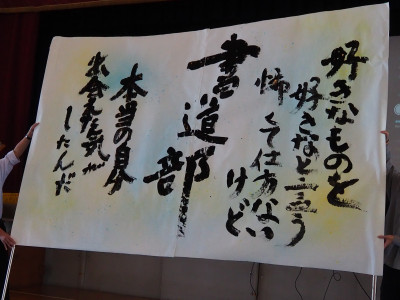 好きなものを
好きなと言う
怖くて仕方ない
けど
書道部
本当の自分
出会えた気が
したんだ